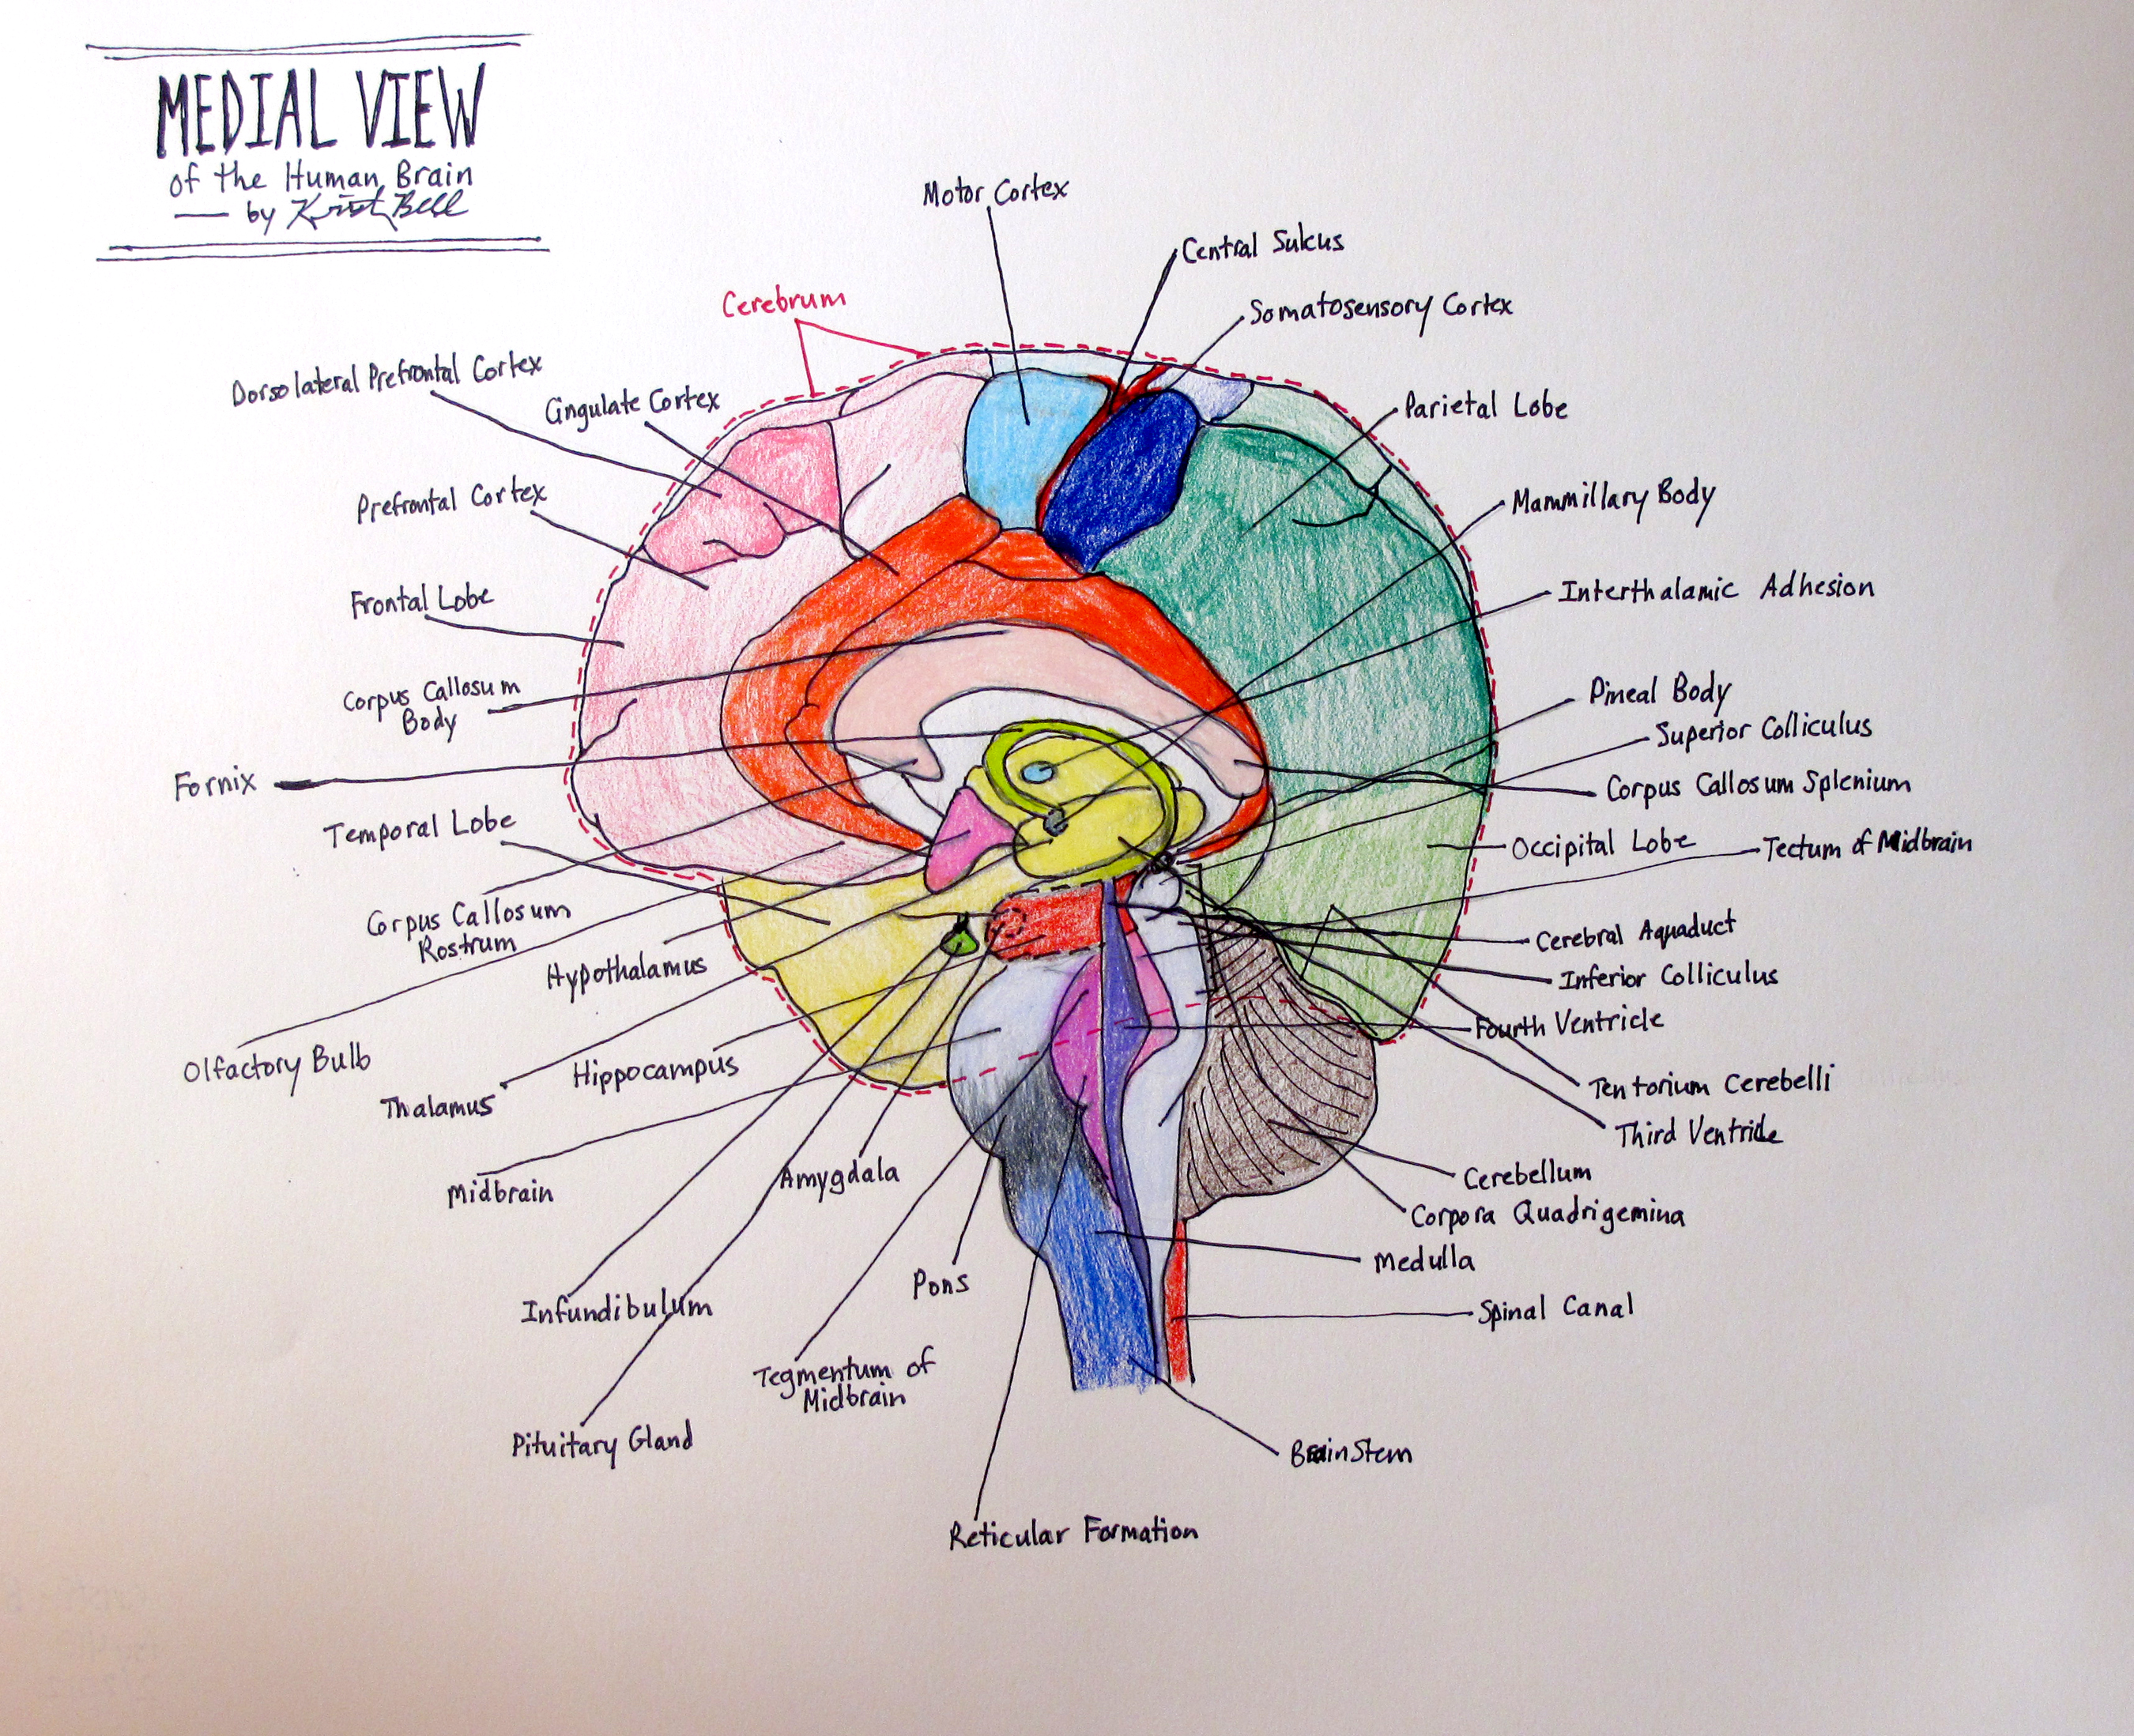 MEDIAL VIEW
of the Human Brain
— by Kristi Bell
Motor Cortex
Central Sulcus
Somatosensory Cortex
Cerebrum
Dorsolateral Prefrontal Cortex
Cingulate Cortex
Parietal Lobe
Prefrontal Cortex
Mammillary Body
Frontal Lobe
Interthalamic Adhesion
Corpus Callosum
Body
Pineal Body
Superior Colliculus
Fornix
Corpus Callosum Splenium
Temporal Lobe
Occipital Lobe
Tectum of Midbrain
Corpus Callosum
Rostrum
Cerebral Aquaduct
Hypothalamus
Inferior Colliculus
Fourth Ventricle
Olfactory Bulb
Hippocampus
Tentorium Cerebelli
Thalamus
Third Ventricle
Midbrain
Amygdala
Cerebellum
Corpora Quadrigemina
Medulla
Pons
Infundibulum
Spinal Canal
Tegmentum of
Midbrain
Pituitary Gland
BrainStem
Reticular Formation